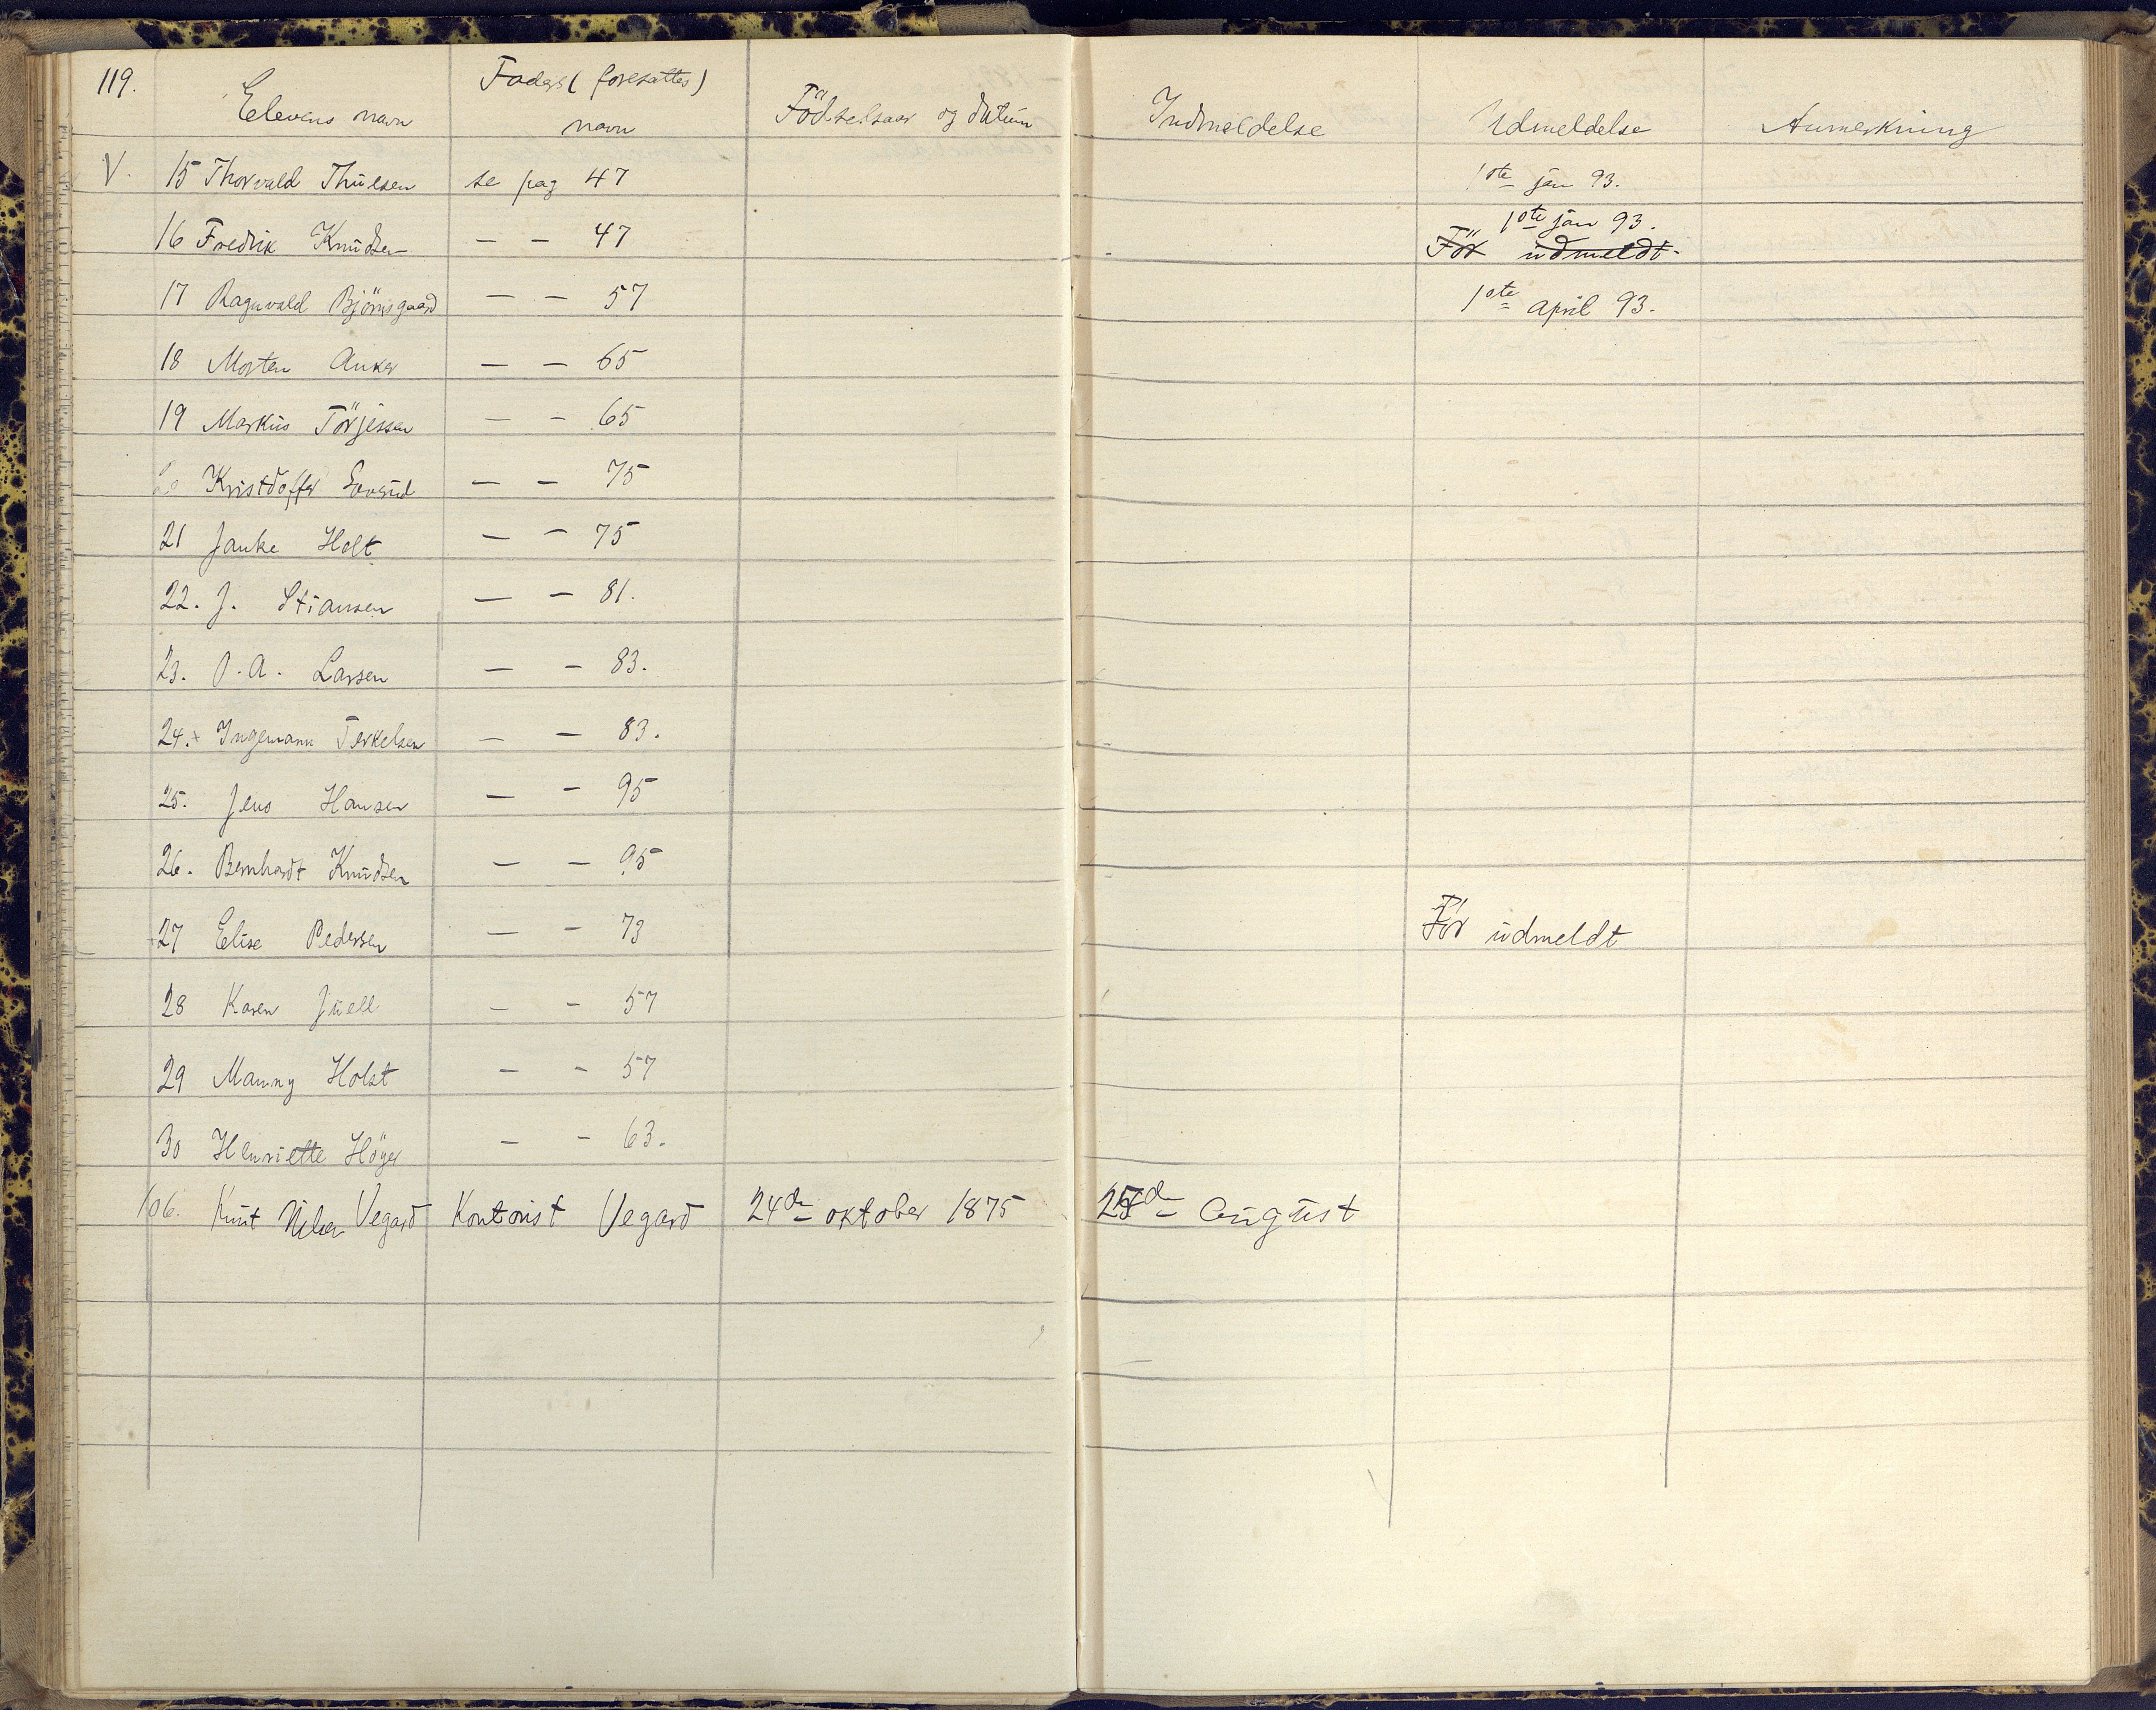 119.
Elevens navn Faders (foresattes) navn Födselsaar og datum Indmeldelse Udmeldelse Anmerkning
V. 15 Thorvald Thulsen se pag 47 1ste jan 93.
16 Fredrik Knudsen — — 47 1ste jan 93.
För udmeldt.
17 Ragnvald Björnsgaard — — 57 1ste april 93.
18 Morten Anker — — 65
19 Markus Törjessen — — 65
20 Kristoffer — — 75
21 Janke Holt — — 75
22. J. Stiansen — — 81.
23. O. A. Larsen — — 83.
24. + Ingemann Terkelsen — — 83.
25. Jens Hansen — — 95
26. Bernhardt Knudsen — — 95
27 Elise Pedersen — — 73 För udmeldt
28 Karen Juell — — 57
29 Manny Holst — — 57
30 Henriette Höyer — — 63.
106. Knut Vegard Kontorist Vegard 24de oktober 1875 25de August